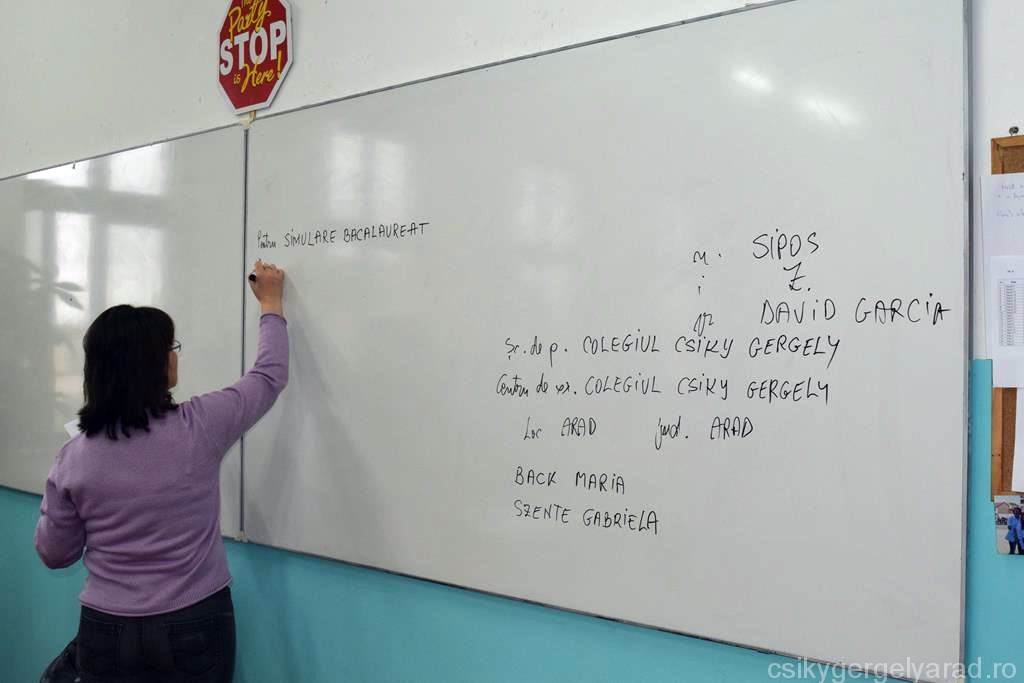 The
Party
STOP
is Here!
Pentru SIMULARE BACALAUREAT
n. SIPOS
i Z.
pr DAVID GARCIA
Șc. de p. COLEGIUL CSIKY GERGELY
Centru de ex. COLEGIUL CSIKY GERGELY
Loc ARAD jud. ARAD
BACK MARIA
SZENTE GABRIELA
csikygergelyarad.ro